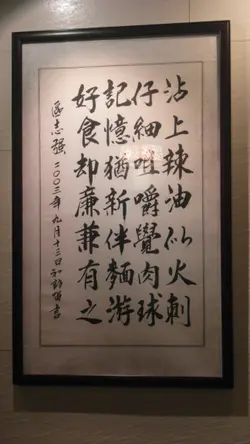 沾上辣油似火刺
仔細咀嚼覺肉球
記憶猶新伴麵游
好食却廉兼有之
區志強 二〇〇三年九月十三日